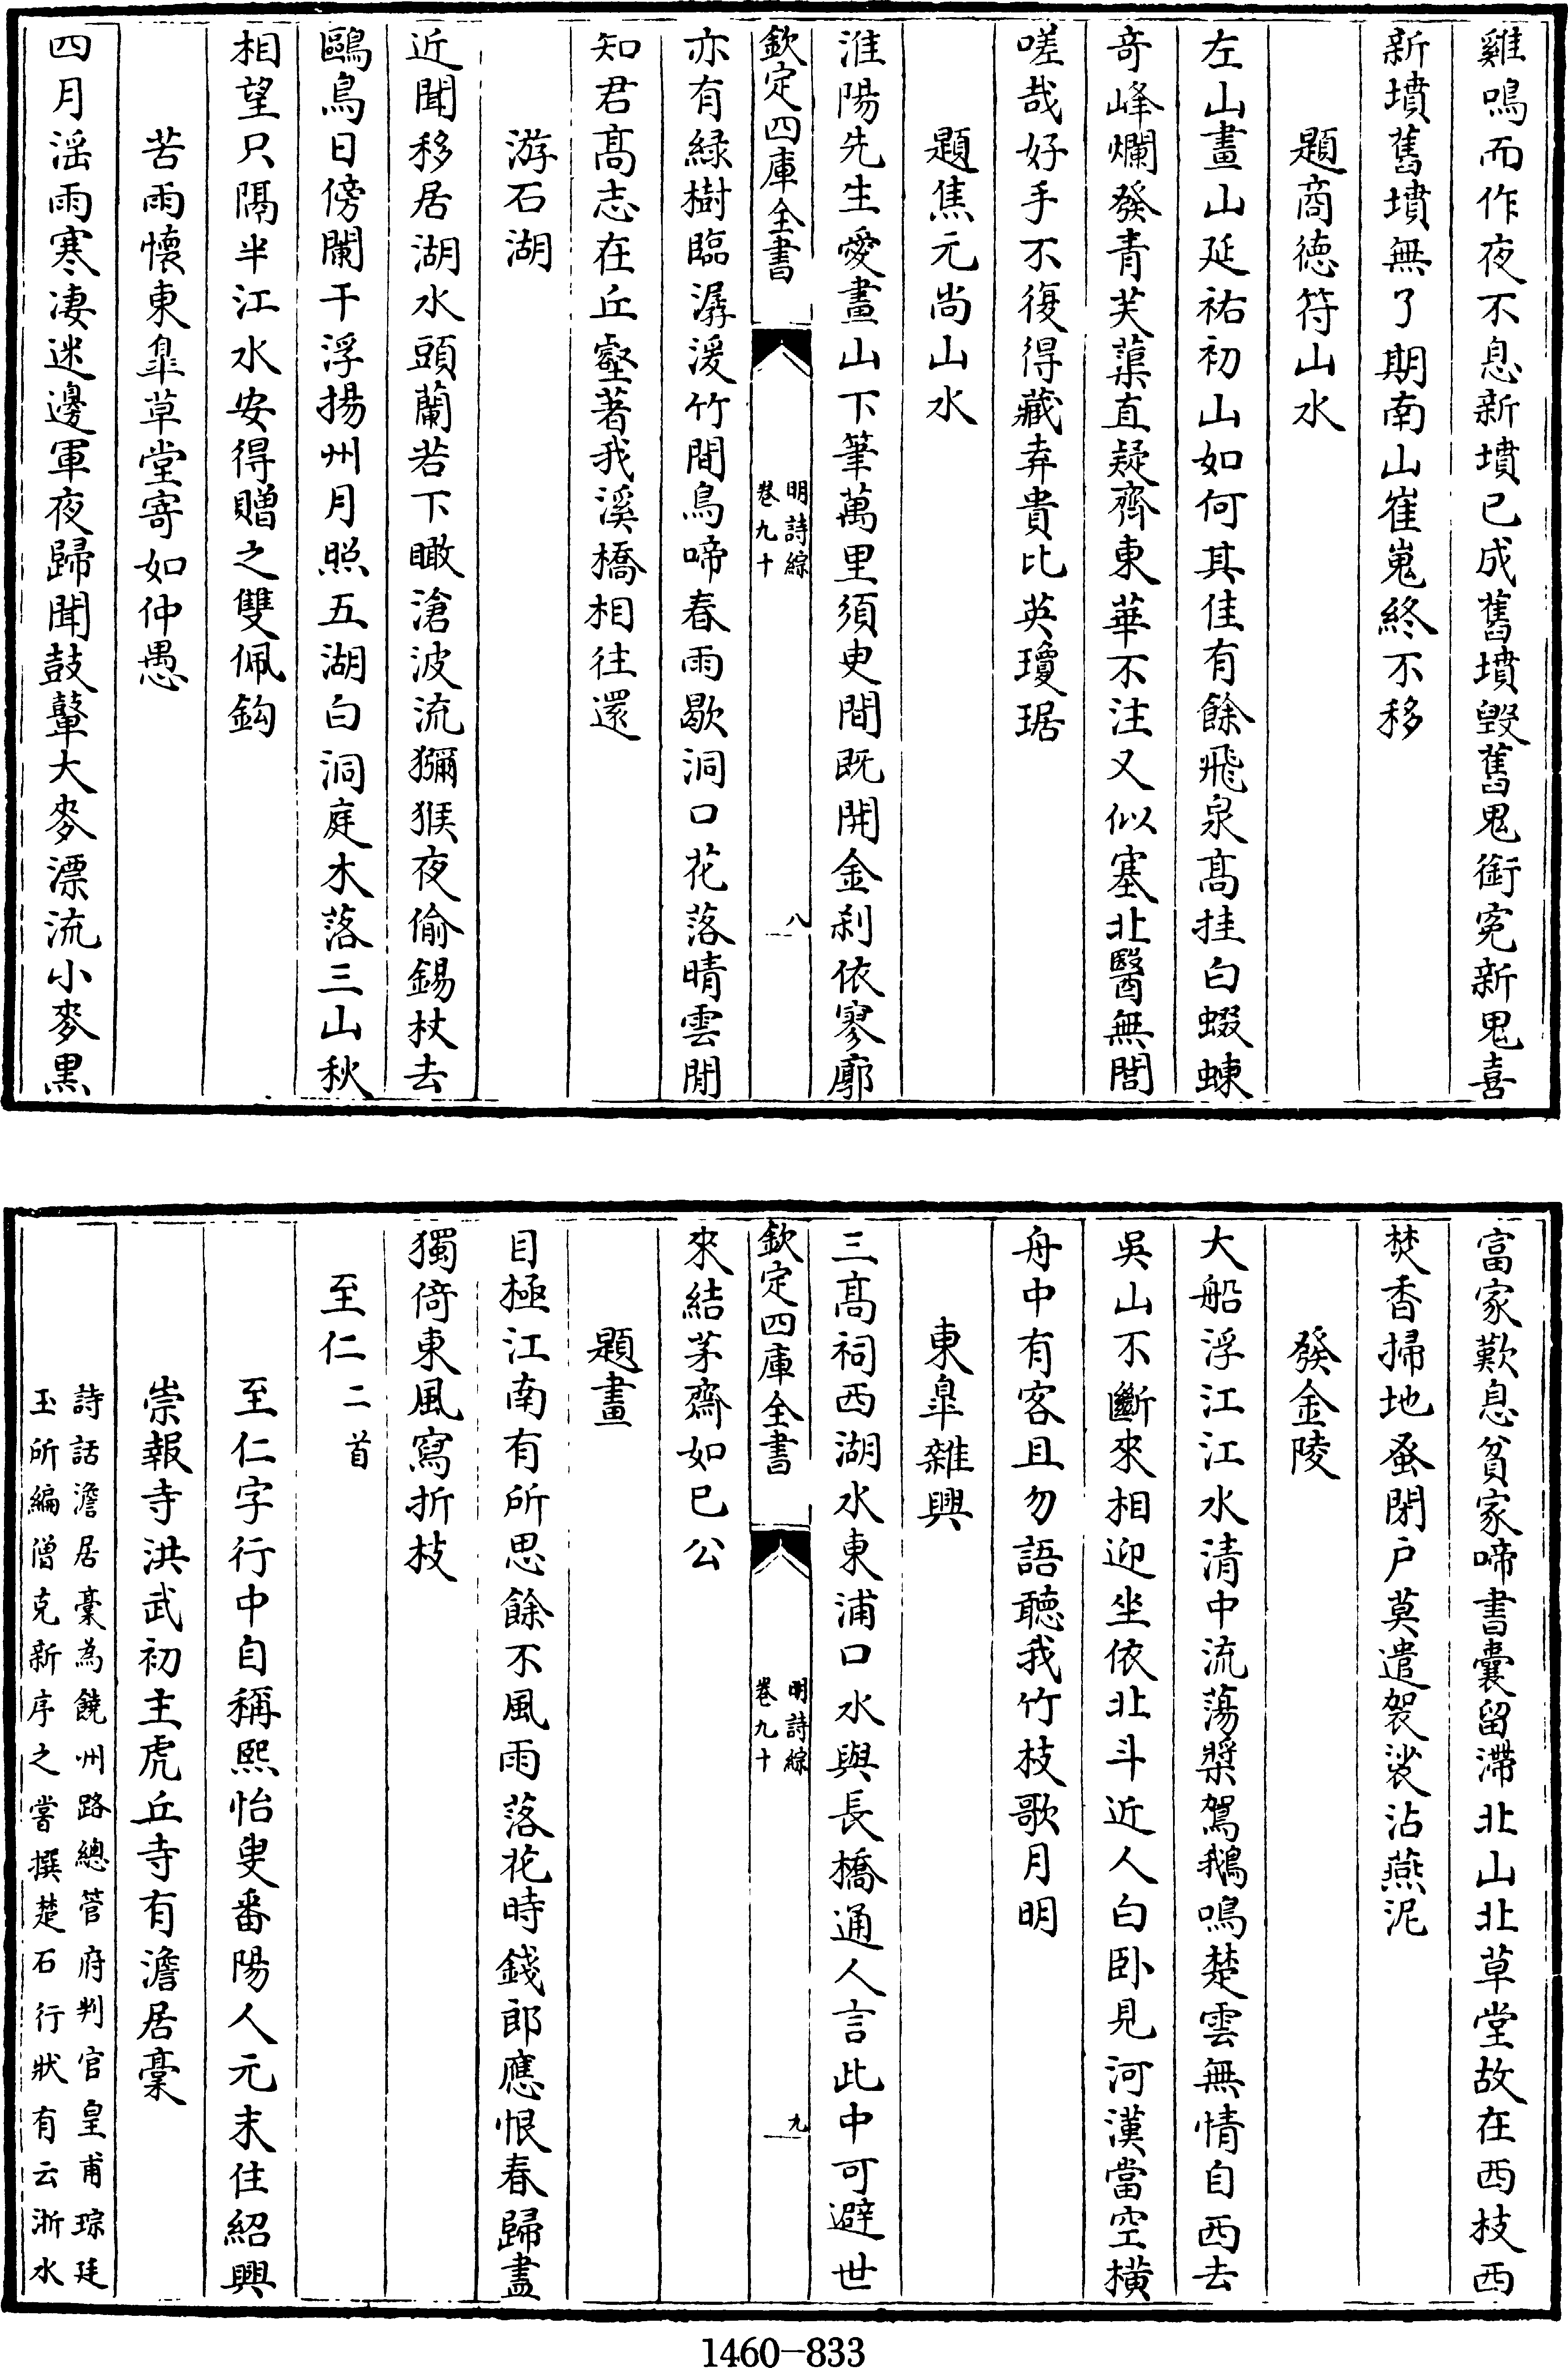 雞鳴而作夜不息新墳已成舊墳毁舊鬼銜寃新鬼喜
新墳舊墳無了期南山崔嵬終不移
題商德符山水
左山畫山延祐初山如何其佳有餘飛泉髙挂白蝃蝀
奇峰爛發青芙蕖直疑齊東華不注又似塞北醫無閭
嗟哉好手不復得藏弆貴比英瓊琚
題焦元尚山水
淮陽先生愛畫山下筆萬里須臾間既開金刹依寥廓
欽定四庫全書
明詩綜
卷九十
八
亦有緑樹臨潺湲竹間鳥啼春雨歇洞口花落晴雲閒
知君髙志在丘壑著我溪橋相往還
游石湖
近聞移居湖水頭蘭若下瞰滄波流獼猴夜偷錫杖去
鷗鳥日傍闌干浮揚州月照五湖白洞庭木落三山秋
相望只隔半江水安得贈之雙佩鈎
苦雨懷東臯草堂寄如仲愚
四月滛雨寒凄迷邊軍夜歸聞鼓鼙大麥漂流小麥黒
富家歎息貧家啼書囊留滯北山北草堂故在西枝西
焚香掃地蚤閉户莫遣袈裟沾燕泥
發金陵
大船浮江江水清中流蕩槳駕鵝鳴楚雲無情自西去
吳山不斷來相迎坐依北斗近人白卧見河漢當空橫
舟中有客且勿語聽我竹枝歌月明
東臯雜興
三髙祠西湖水東浦口水與長橋通人言此中可避世
欽定四庫全書
明詩綜
卷九十
九
來結茅齋如已公
題畫
目極江南有所思餘不風雨落花時錢郎應恨春歸盡
獨倚東風寫折枝
至仁二首
至仁字行中自稱熙怡叟番陽人元末住紹興
崇報寺洪武初主虎丘寺有澹居稾
詩話澹居稾為饒州路總管府判官皇甫琮廷
玉所編僧克新序之嘗撰楚石行狀有云浙水
1460-833